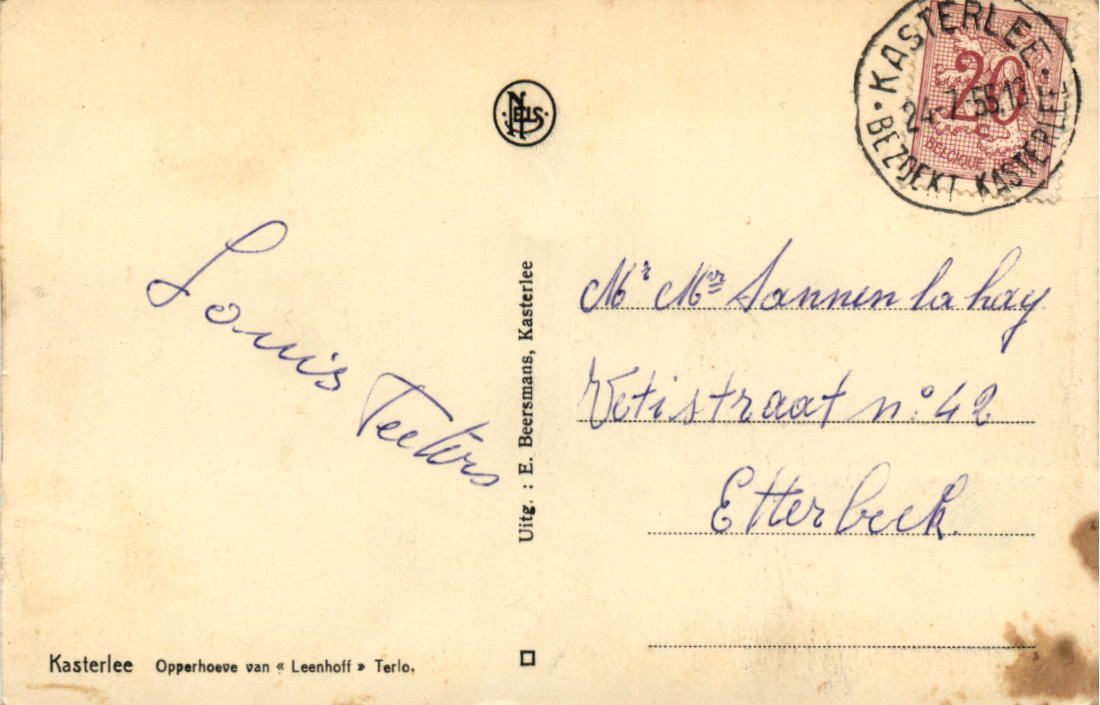 KASTERLEE
24-7-55.13
BEZOEKT KASTERLEE
20
c
BELGIQUE
NELS
Louis
Peeters
Uitg. : E. Beersmans, Kasterlee
Mr Mvr Sannen la hay
straat n° 42
Etterbeek.
Kasterlee Opperhoeve van « Leenhoff » Terlo.